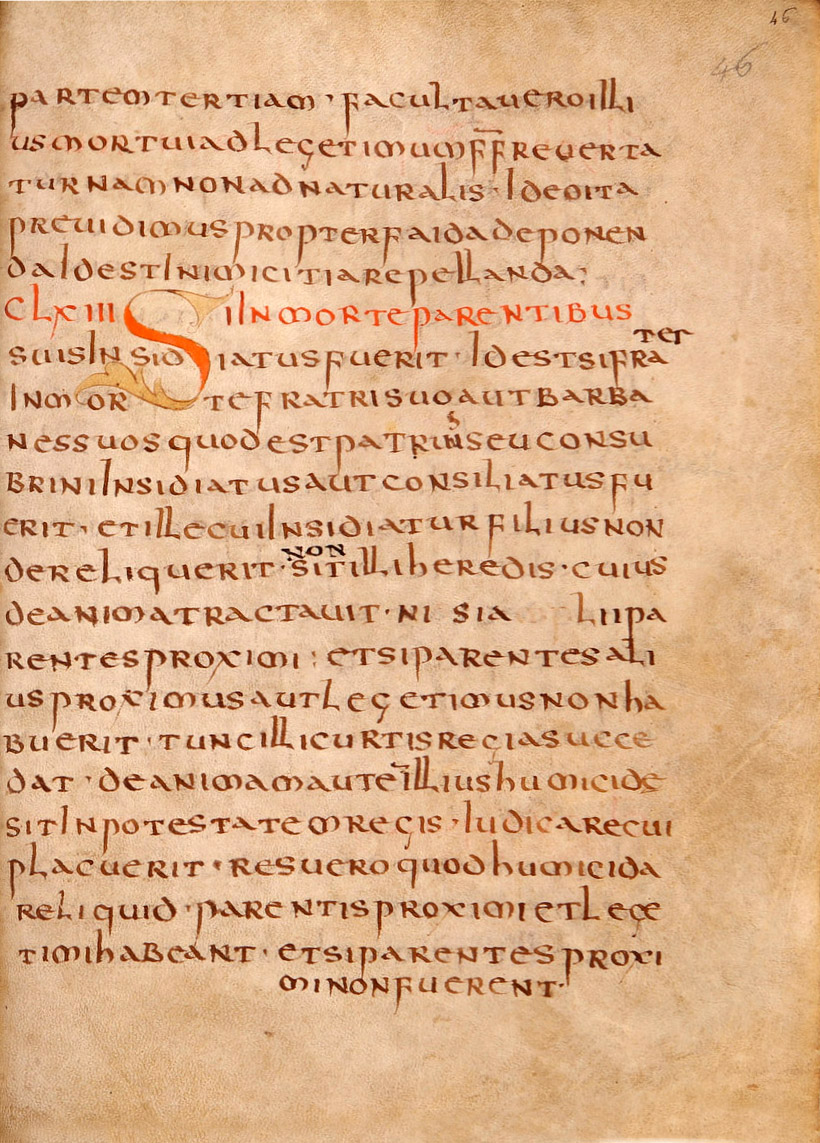 46
46
partem tertiam · facultas uero illi
us mortui ad legetimum f̄f̄ reuerta
tur nam non ad naturalis · Ideo ita
preuidimus propter faida deponen
da Id est Inimicitia repellanda;
CLXIII Si In morte parentibus
ter
suis Insidiatus fuerit · Id est si fra
In morte fratri suo aut barba
s
nes suos quod est patriu seu consu
brini Insidiatus aut consiliatus fu
erit · et ille cui Insidiatur filius non
non
dereliquerit · sit illi heredis · cuius
de anima tractauit · ni si a lii pa
rentes proximi : et si parentes ali
us proximus aut legetimus non ha
buerit · tunc illi curtis regia succe
dat · de animam autē illius humicide
sit In potestatem regis · Iudicare cui
placuerit · res uero quod humicida
reliquid · parentis proximi et lege
timi habeant · et si parentes proxi
mi non fuerent·